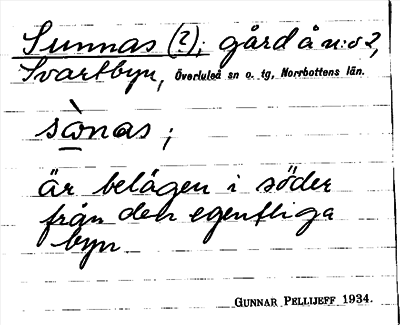 Sunnas (?); gård å n:o 2,
Svartbyn, Överluleå sn o. tg, Norrbottens län.
sὼnas;
är belägen i söder
från den egentliga
byn
GUNNAR PELLIJEFF 1934.